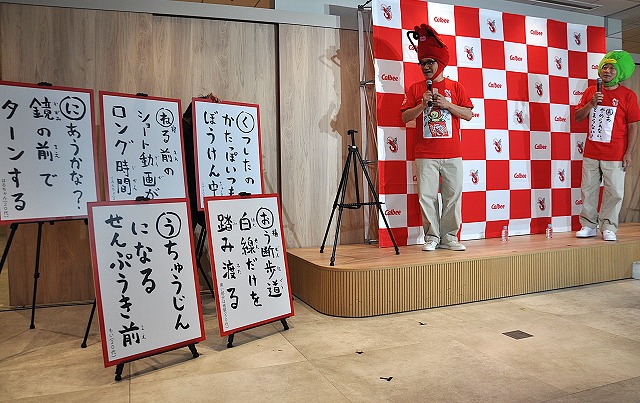 にあうかな?
鏡の前で
ターンする
ねる前の
ショート動画が
ロング時間
くつしたの
かたっぽいつも
ぼうけん中
うちゅうじん
になる
せんぷうき前
おう断歩道
白線だけを
踏み渡る
Calbee
Calbee
Calbee
Calbee
Calbee
Calbee
Calbee